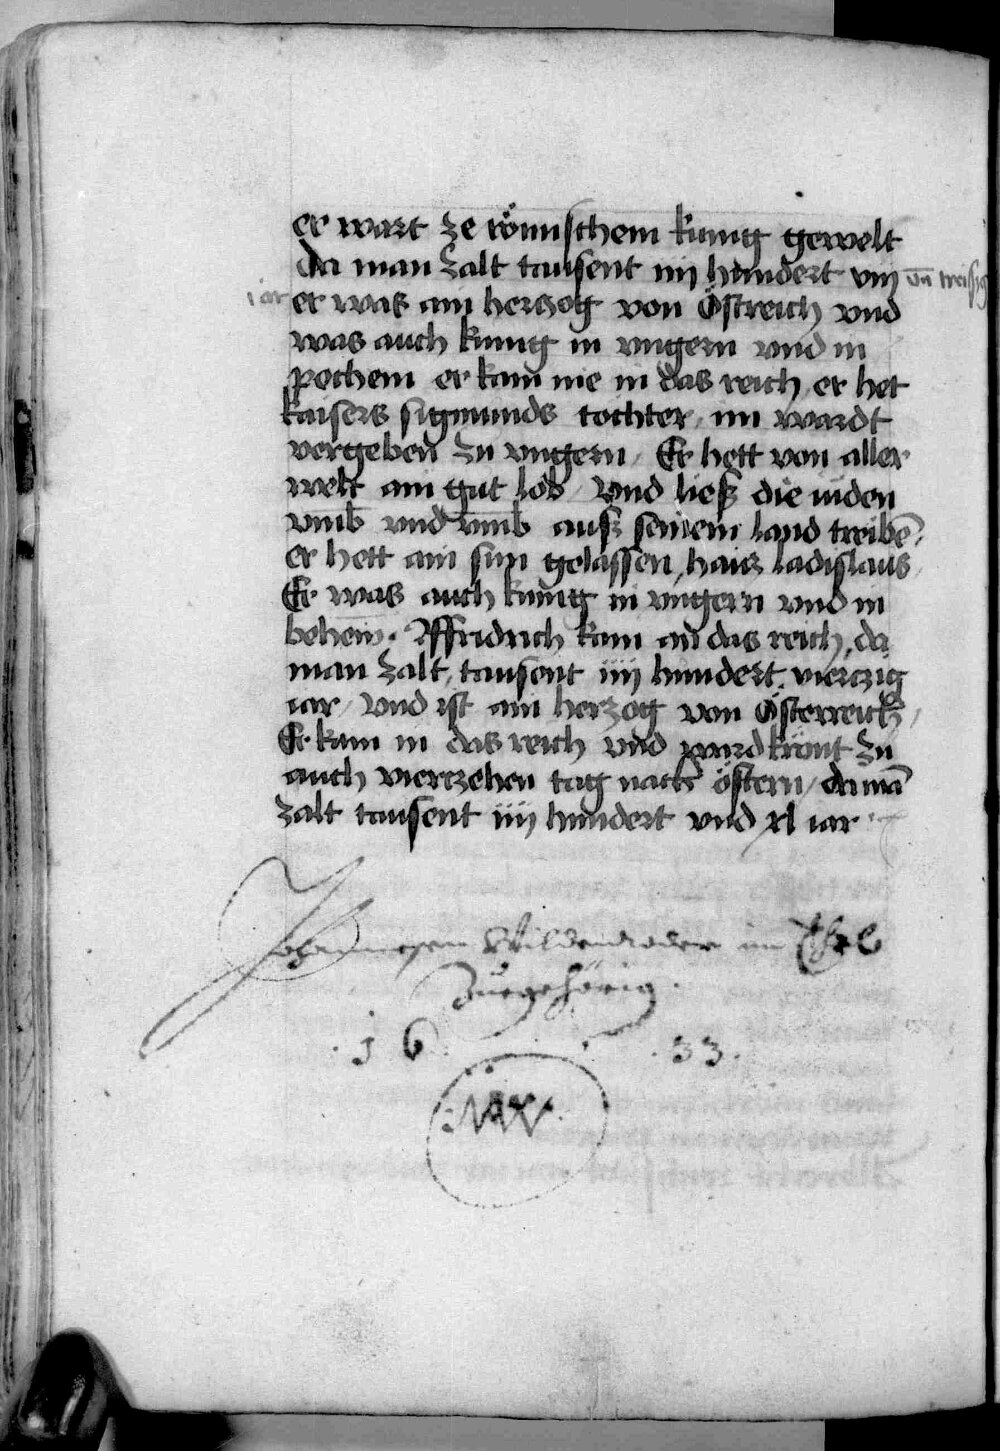 er wart ze römischem kunig gewelt
da man zalt tausent iiij hundert viij vn̄ treissig
iar er was ain herczog von Östreich vnd
was auch kunig in vngern vnd in
pechem er kam nie in das reich er het
kaisers sigmunds tochter, im wardt
vergeben zu vngern / Er hett von aller
welt ain gut lob / vnd liesz die iuden
vmb vnd vmb ausz seinem land treibē /
er hett ain sun gelassen, haisz ladislaus /
Er was auch kunig in vngern vnd in
behem̄. Affridrich kam an das reich, da
man zalt, tausent iiij hundert vierczig
iar / vnd ist ain herzog von Österreich /
Er kam in das reich vnd ward krönt zu
auch vierczehen tag nach östern / da mā
zalt tausent iiij hundert vnd xl iar
Johannesen im
Zuegehörig.
. 1 6 . 33 .